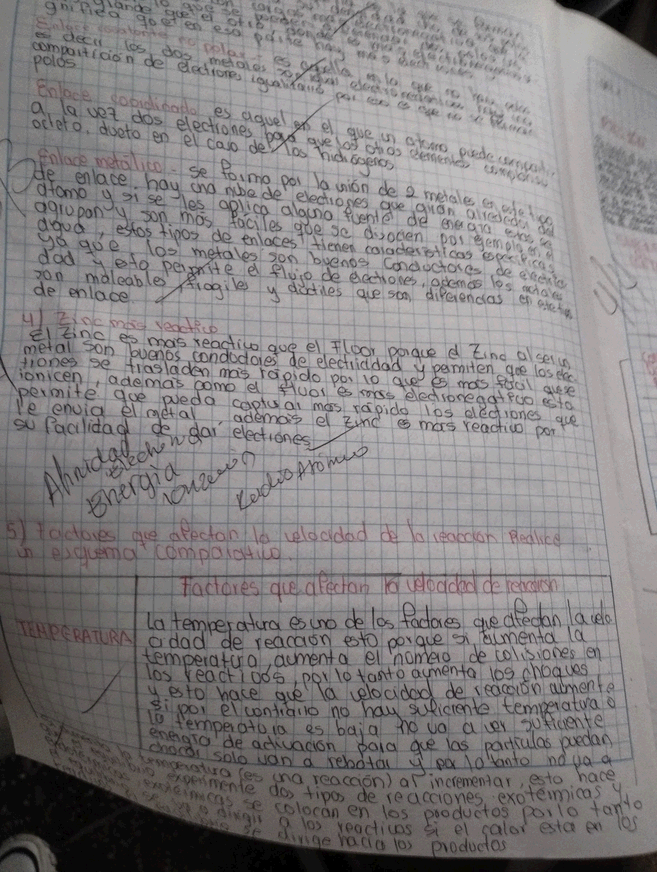 Enlace covalente no polar es aquella en la que no hay
es decir los dos metales son
compartición de electrones igualitario por eso es que no se forman
polos
Enlace es aquel en el que un atomo puede compartir
a la vez dos electrones para que los otros elementos completen
octeto, dueto en el caso de los hidrógenos
Enlace metálico - se forma por la unión de 2 metales en este tipo
de enlace hay una nube de electrones que giran alrededor del
atomo y si se les aplica alguna fuente de energía estos se
agrupan y son más fáciles que se disocien por ejemplo en el
agua, estos tipos de enlaces tienen características específicas
ya que los metales son buenos conductores de electrici
dad y esto permite el flujo de electrones, ademas los metales
son maleables fragiles y dúctiles que son diferencias en este tipo
de enlace.
4) Zinc más reactivo
El zinc es más reactivo que el Fluor porque el Zinc al ser un
metal son buenos conductores de electricidad y permiten que los elec
trones se trasladen más rápido por lo que es más fácil que se
ionicen, además como el fluor es más electronegativo esto
permite que pueda captural más rápido los electrones que
le envia el metal, además el zinc es más reactivo por
su facilidad de dar electrones
Afinidad
electrón
Energía
ionización
Radio Atomico
5) Factores que afectan la velocidad de la reacción Realice
un esquema comparativo.
Factores que afectan la velocidad de reacción
TEMPERATURA
La temperatura es uno de los factores que afectan la velo
cidad de reacción esto porque si aumenta la
temperatura, aumenta el número de colisiones en
los reactivos, por lo tanto aumenta los choques
y esto hace que la velocidad de reacción aumente
si por el contrario no hay suficiente temperatura o
la temperatura es baja no va a ver suficiente
energia de activación para que las partículas puedan
chocar solo van a rebotar y por lo tanto no va a
la temperatura (es una reacción) al incrementar, esto hace
experimente dos tipos de reacciones, exotérmicas y
exotérmicas se colocan en los productos por lo tanto
se va a dirigir a los reactivos si el calor esta en los
se dirige hacia los productos